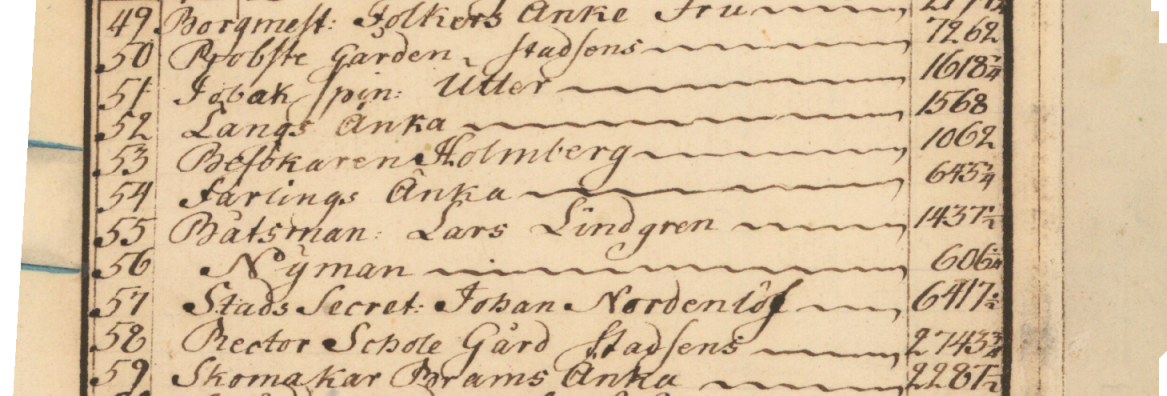 49 Borgmest: Folkers Änke Fru
50 Probste Gården, Stadsens 7262
51 Tobak spin: Utter 1618 3/4
52 Langs Änka 1568
53 Besökaren Holmberg 1062
54 Färlings Änka 645 3/4
55 Båtsman: Lars Lindgren 1437 1/2
56 Nÿman 606 1/4
57 Stads Secret: Johan Nordenlöf 6417 1/2
58 Rector Schole Gård Stadsens 2743 3/4
59 Skomakar Brams Änka 2287 1/2